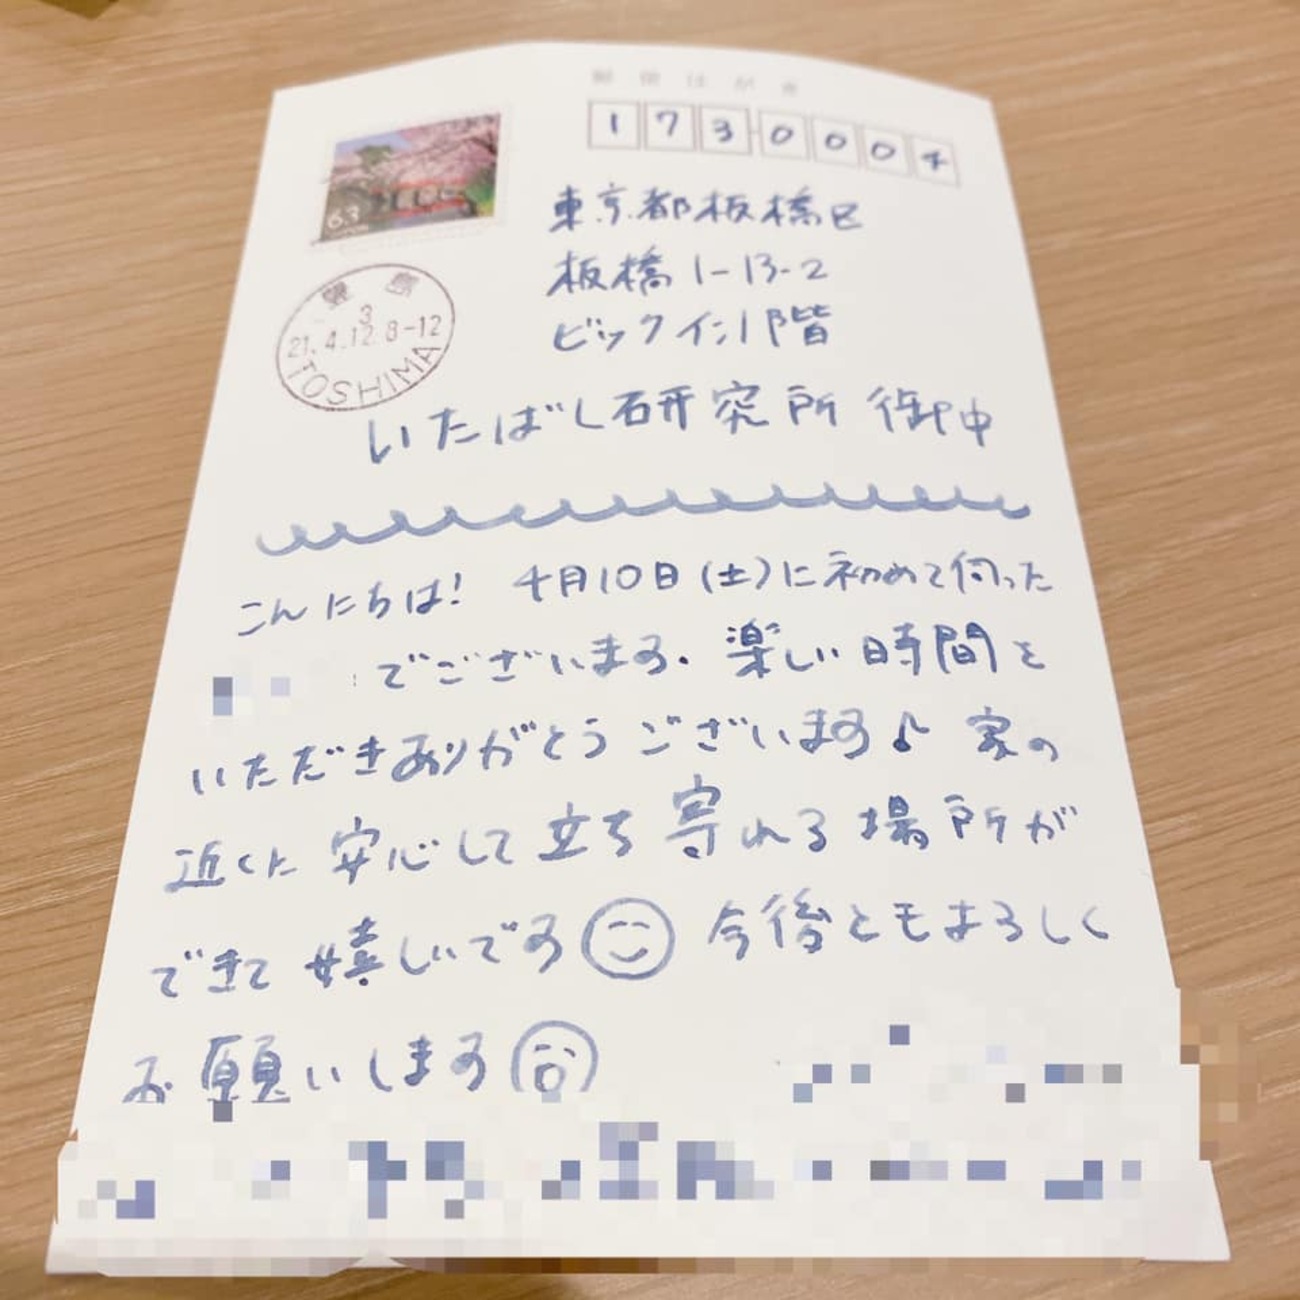 郵便はがき
1730004
63
NIPPON
東京都板橋区
板橋1-13-2
ビックイン1階
豊島
3
21.4.12.8-12
TOSHIMA
いたばし研究所 御中
こんにちは! 4月10日(土)に初めて伺った
でございます. 楽しい時間を
いただきありがとうございます♪ 家の
近くに安心して立ち寄れる場所が
できて嬉しいです 今後ともよろしく
お願いします